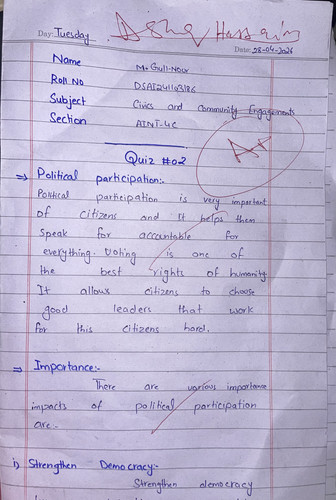 Day: Tuesday
Date: 28-04-2026
Name M. Gull-Nour
Roll No DSAI241103186
Subject Civics and Community Engagements
Section AINT-4C
A+
Quiz #02
⇒ Political participation:-
Political participation is very important
of citizens and it helps them
speak for accountable for
everything. Voting is one of
the best rights of humanity
It allows citizens to choose
good leaders that work
for this citizens hard.
⇒ Importance:-
There are various importance
impacts of political participation
are:-
i) Strengthen Democracy:-
Strengthen democracy